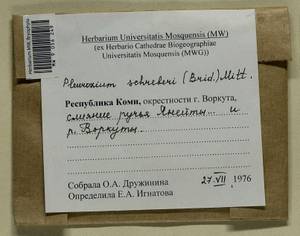 Herbarium Universitatis Mosquensis (MW)
(ex Herbario Cathedrae Biogeographiae
Universitatis Mosquensis (MWG))
Pleurozium schreberi (Brid.) Mitt.
Республика Коми, окрестности г. Воркута,
слияние ручья и
р. Воркуты.
Собрала О.А. Дружинина
27.VII 1976
Определила Е.А. Игнатова